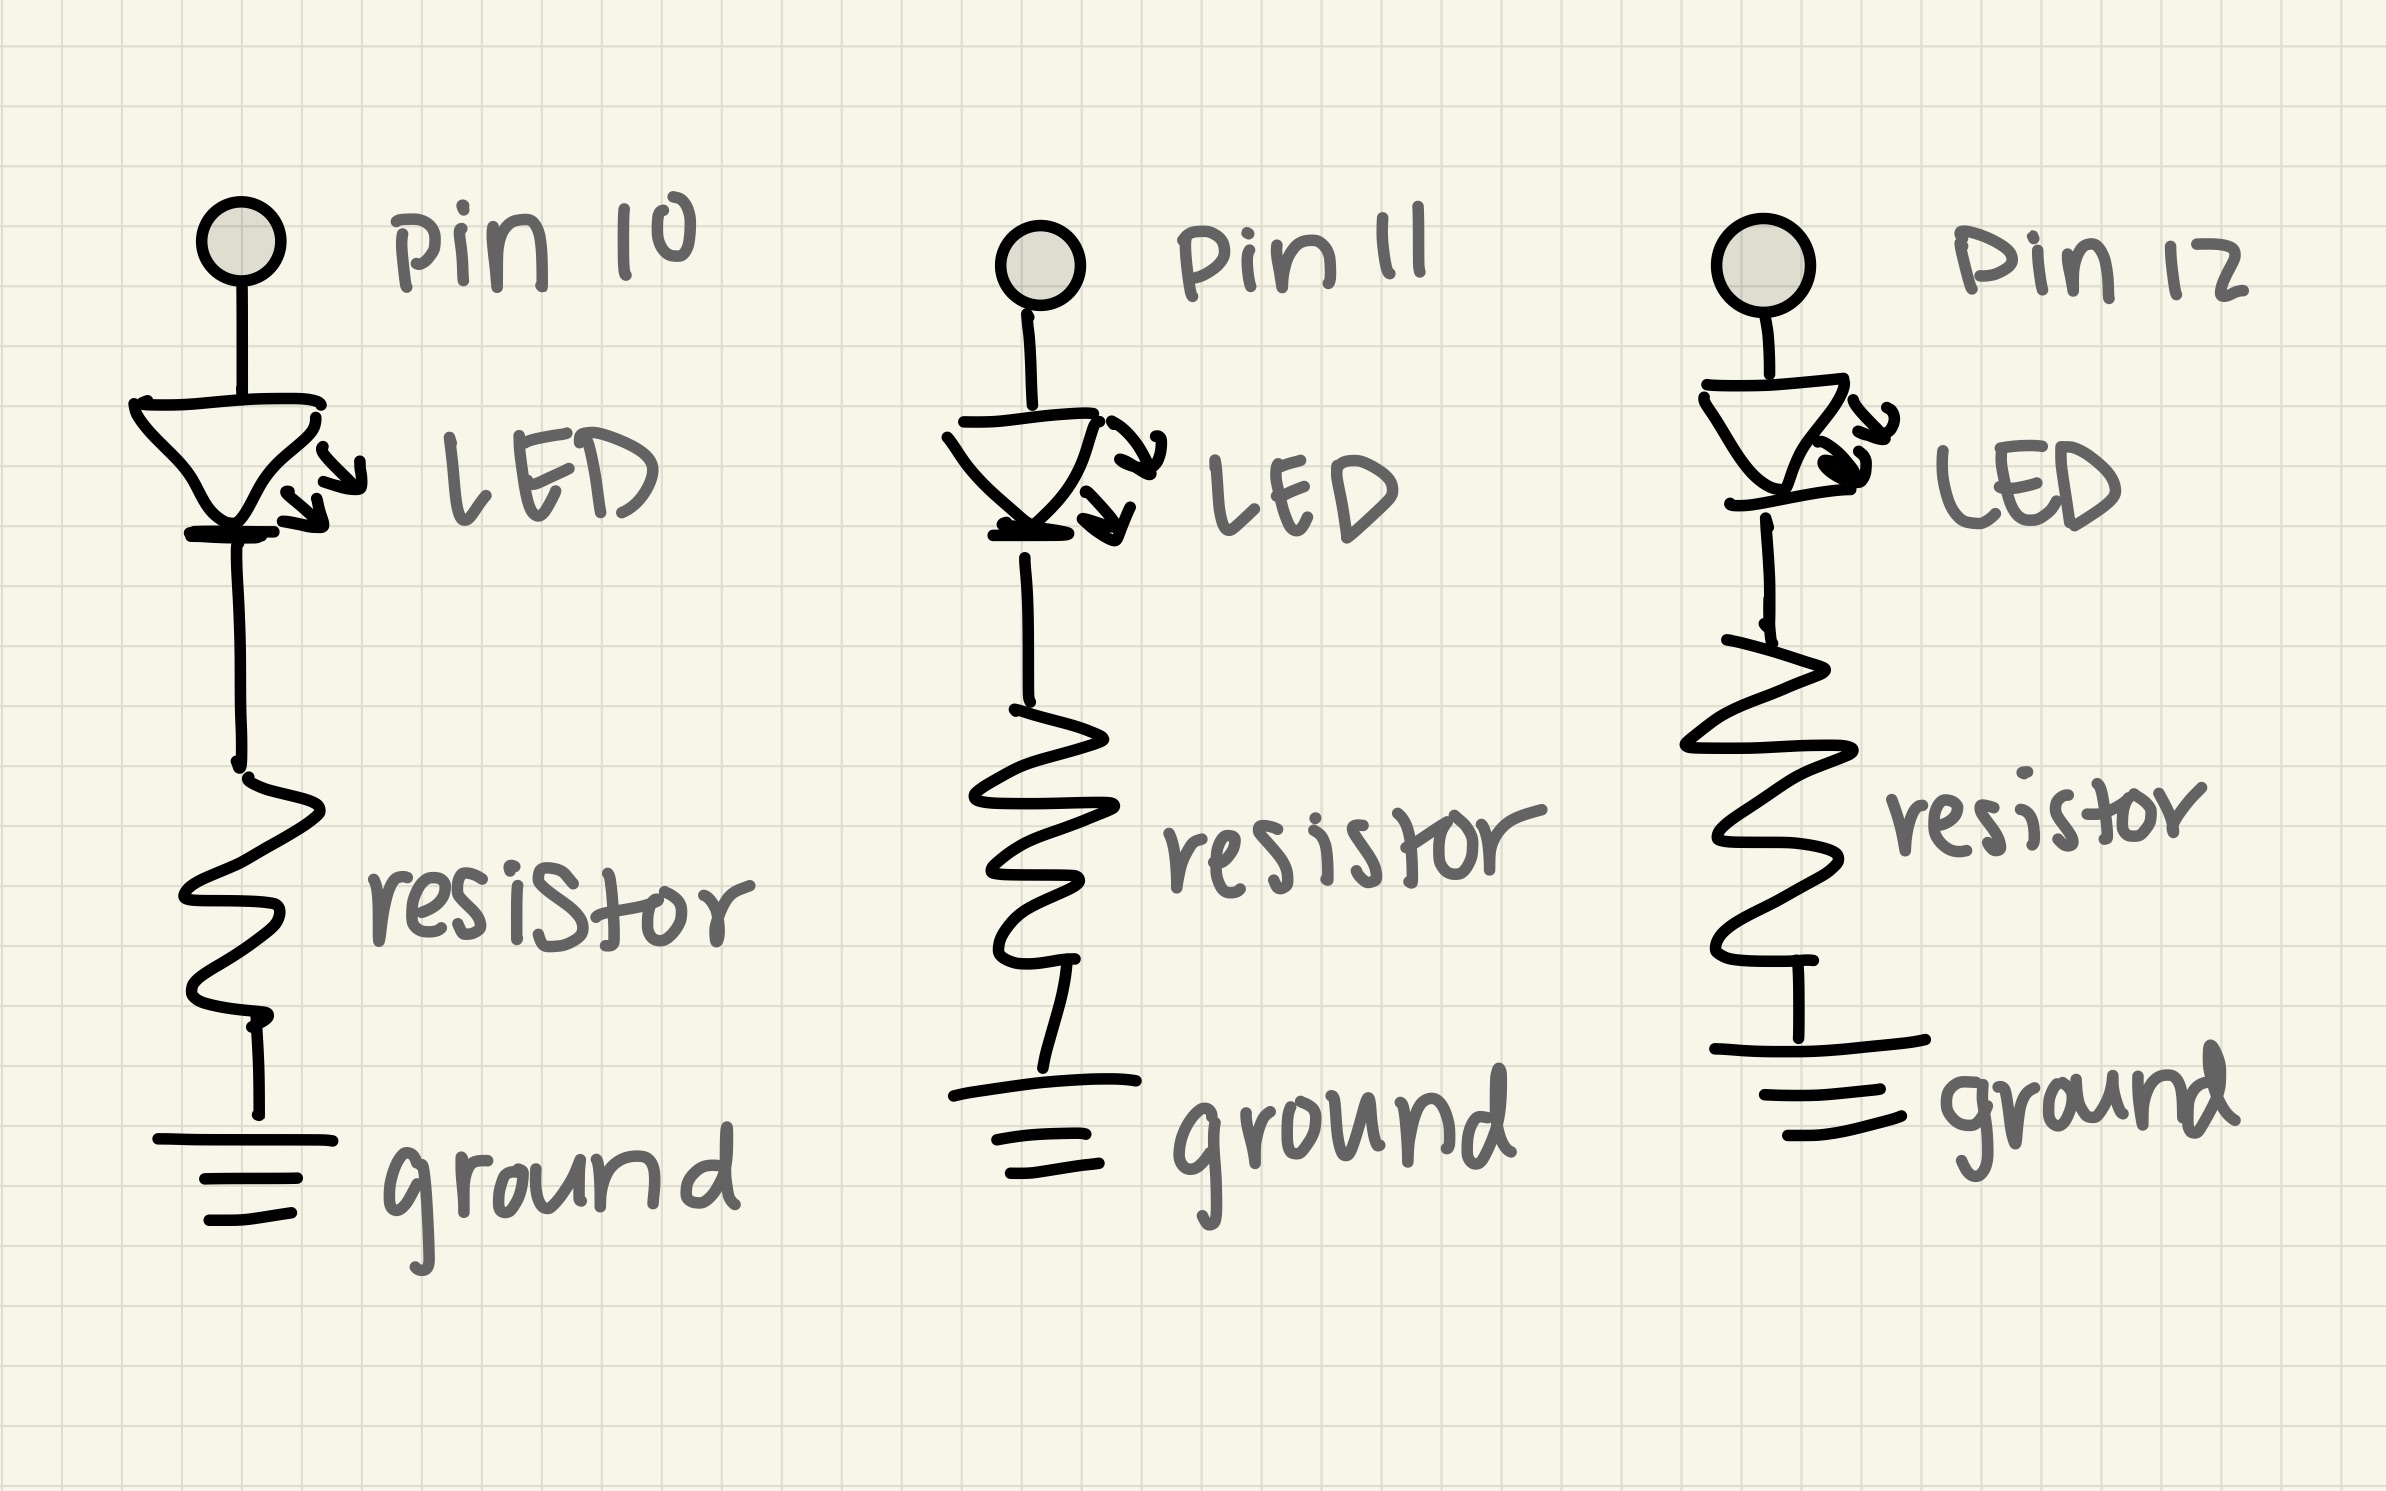 pin 10
LED
resistor
ground
pin 11
LED
resistor
ground
Pin 12
LED
resistor
ground